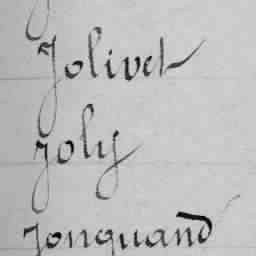 Jolivet
Joly
Jonquand